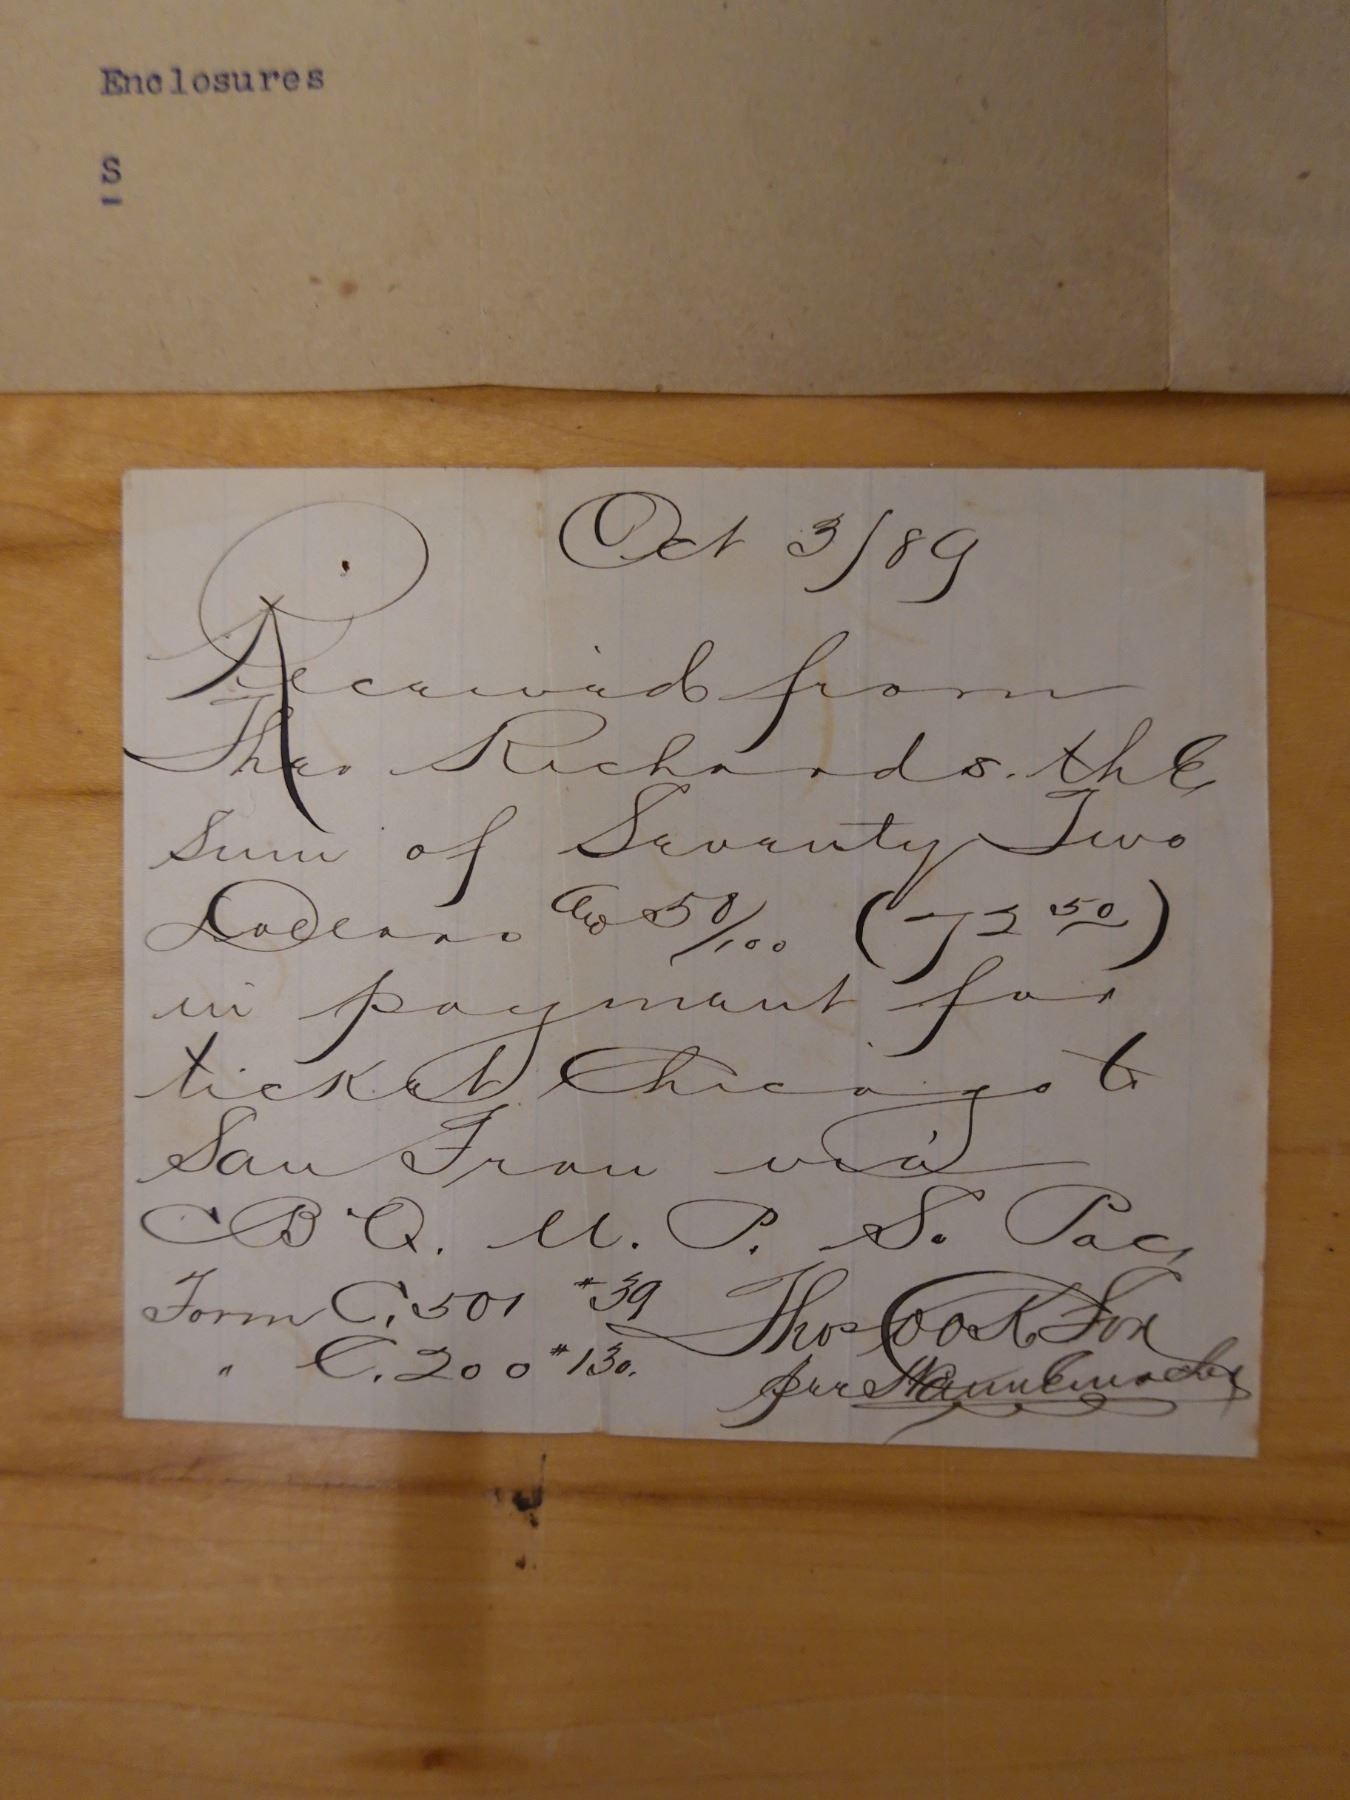 Enclosures
S
Oct 3/89
Received from
Theo Richards. the
Sum of Seventy Two
Dollars and 50/100 (72 50)
in payment for
ticket Chicago to
San Fran via
C B Q. U. P. S. Pac,
Form C. 501 #39
" C. 200 #130.
Thos Cook & Son
per